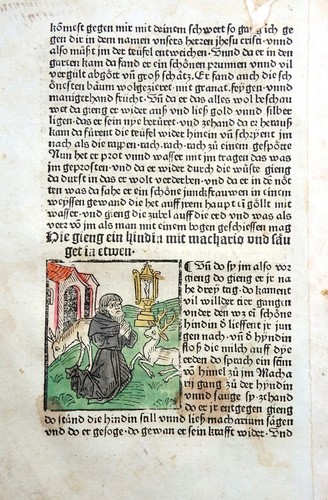 kömest gegen mir mit deinem schwert so gang ich ge
gen dir in dem namen vnsers herren jhesu cristi vnnd
also müst jm der teüfel entweichen. Vnnd da er in den
garten kam da fand er ein schönen prunnen vnnd vil
vergült abgött vñ groß schätz. Er fand auch die schö
nesten bäum wolgezieret mit granat. feygen vnnd
manigerhand frücht. Vñ da er das alles wol beschau
wet da gieng er wider auß vnd ließ gold vnnd silber
ligen. das er sein nye berüret. vnd zehand da er herauß
kam da fürent die teüfel wider hinein vñ schryent jm
nach als die rappen. tach. tach. tach zů einem gespötte
Nun het er prot vnnd wasser mit jm tragen das was
jm geprosten. vnd da er wider durch die wüste gieng
da durst in das er wolt verderben. vnd da er in de nöt
ten was da sahe er ein schöne junckfrauwen in einem
weyssen gewand die het auff jrem haupt ein göllt mit
wasser. vnd gieng die zübel auff die erd vnd was als
verr võ jm als man mit einem bogen geschiessen mag
Hie gieng ein hindin mit machario vnd säu
get in etwen.
Vñ do sy jm also vor
gieng do gieng er jr na
he drey tag. do kament
vil willder tier gangen
vnder den wz ei schöne
hindin d lieffent jr jun
gen nach. vñ d hyndin
floß die milch auff dye
erden do sprach ein stim
võ himel zů jm Macha
rij gang zů der hyndin
vnnd sauge sy. zehand
do er jr entgegen gieng
do stůnd die hindin still vnnd ließ macharium saugen
vnd do er gesoge. do gewan er sein krafft wider. Vnd